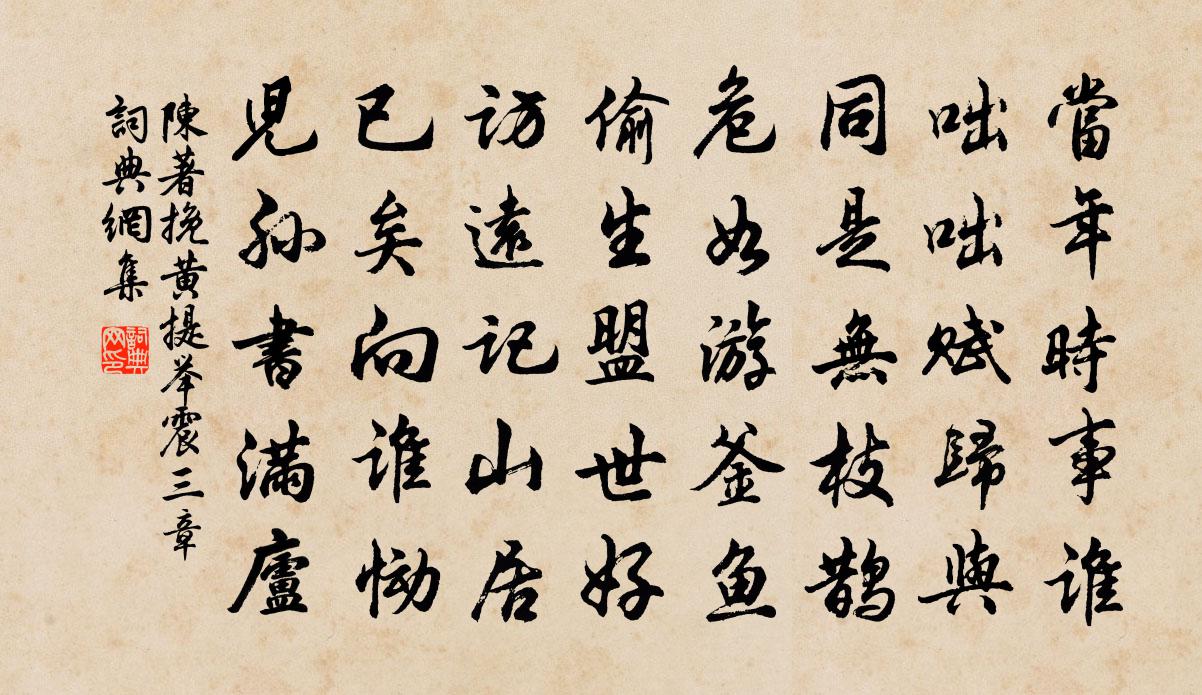 當年時事誰
咄咄賦歸與
同是無枝鵲
危如游釜魚
偷生盟世好
訪遠記山居
已矣向誰慟
児孫書滿廬
陳著挽黃提举震三章
詞典網集
詞典网印